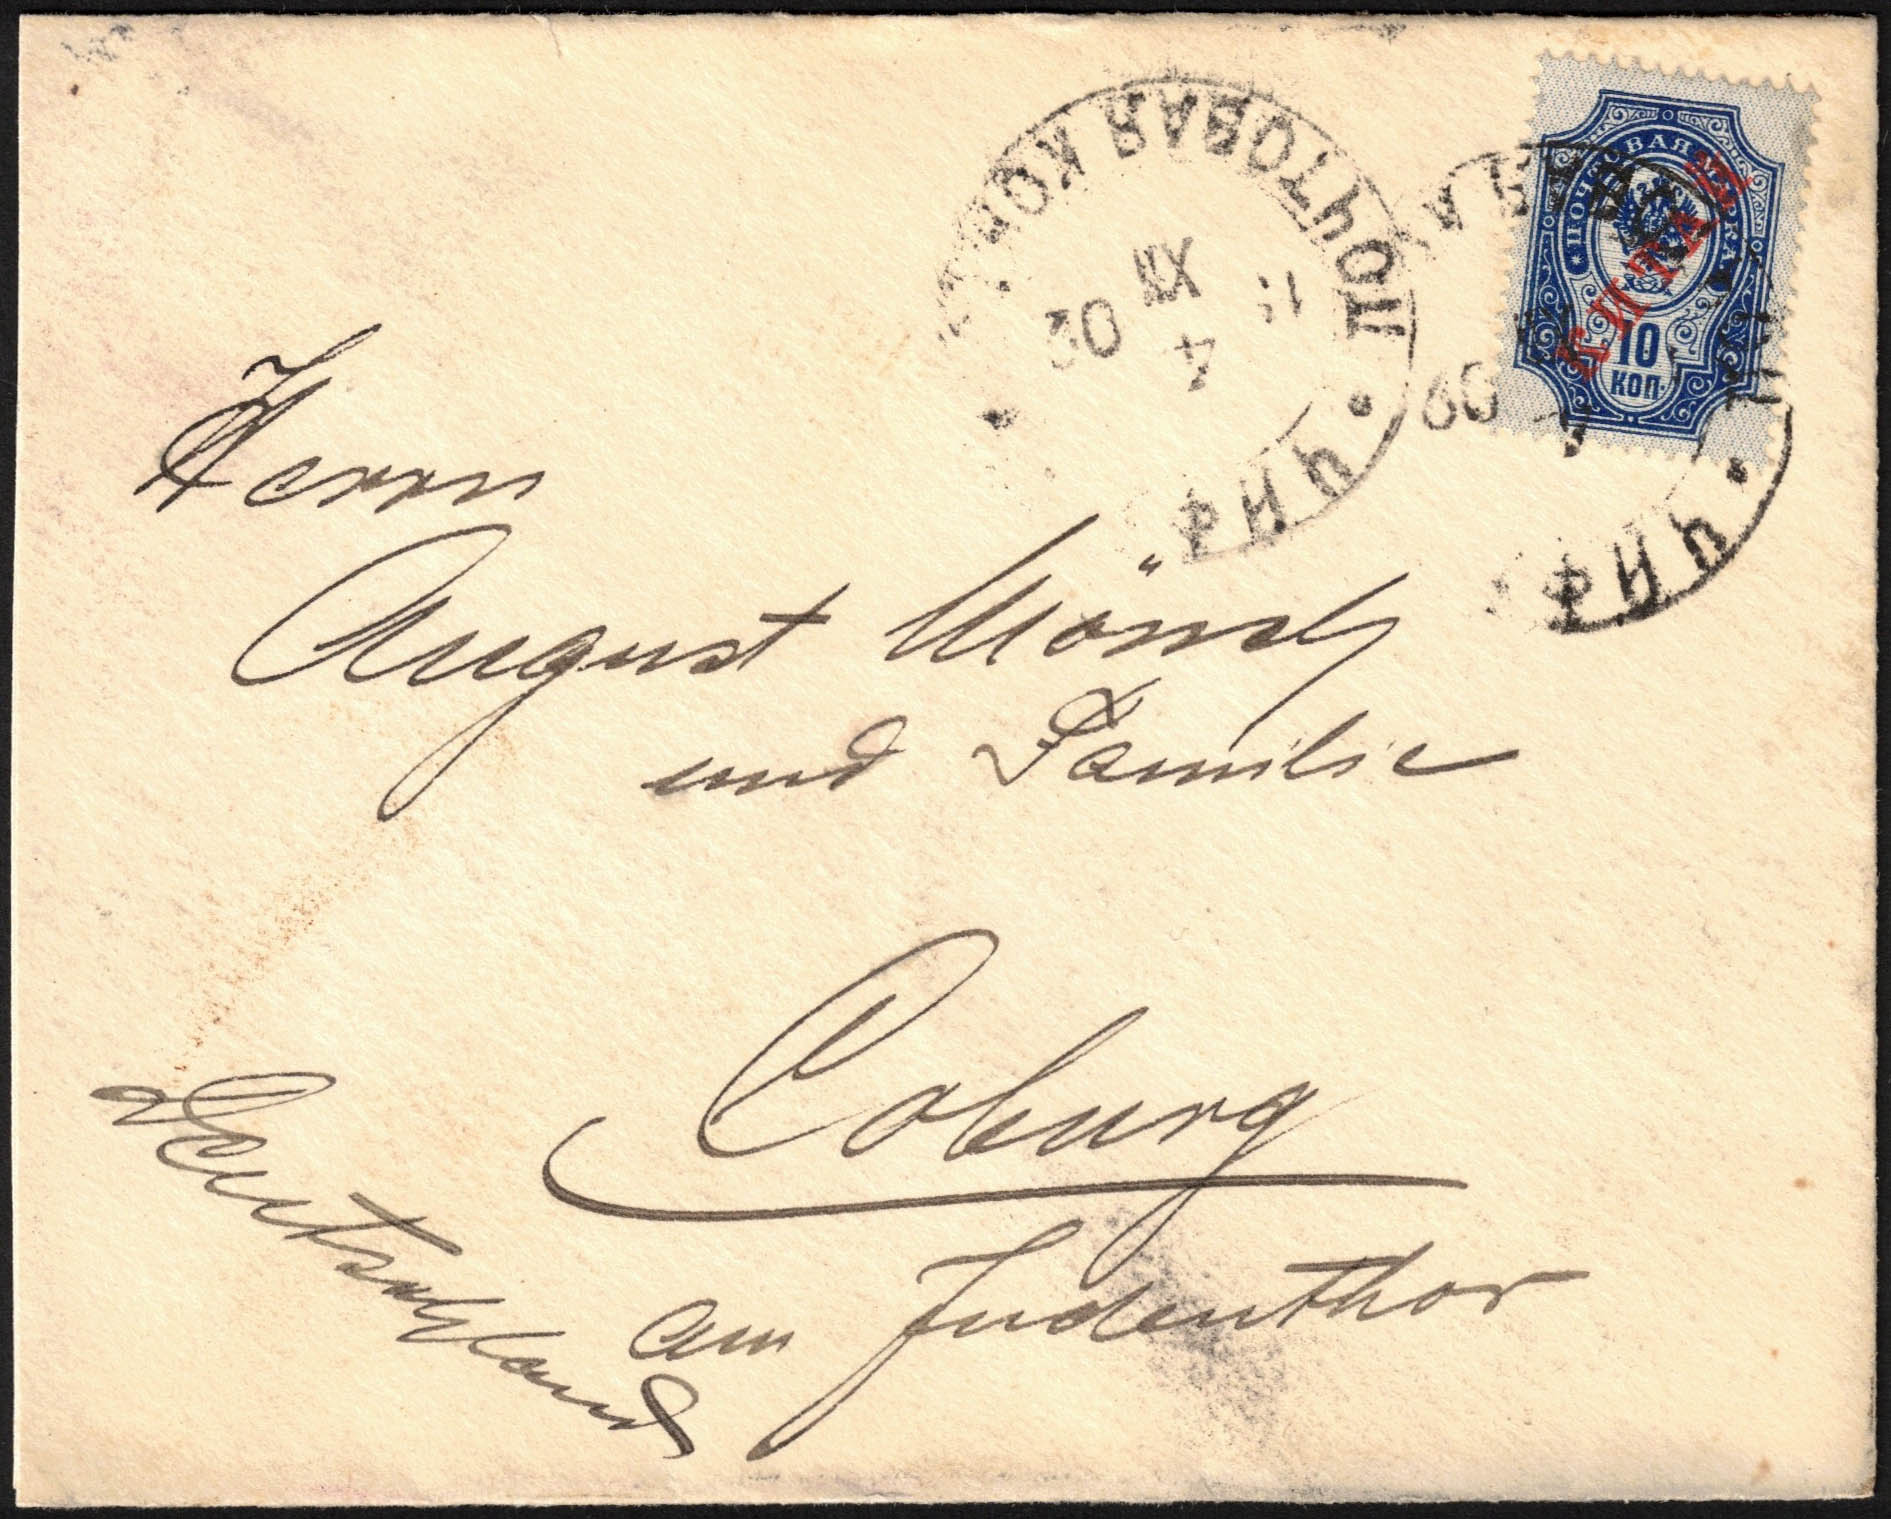 ПОЧТОВАЯ КОН
ЧИФ
11
4
XII
02
ПОЧТОВАЯ МАРКА
КИТАЙ
10
КОП
ЧИФ
Herrn
August Mönch
und Familie
Coburg
am Judenthor
Deutschland